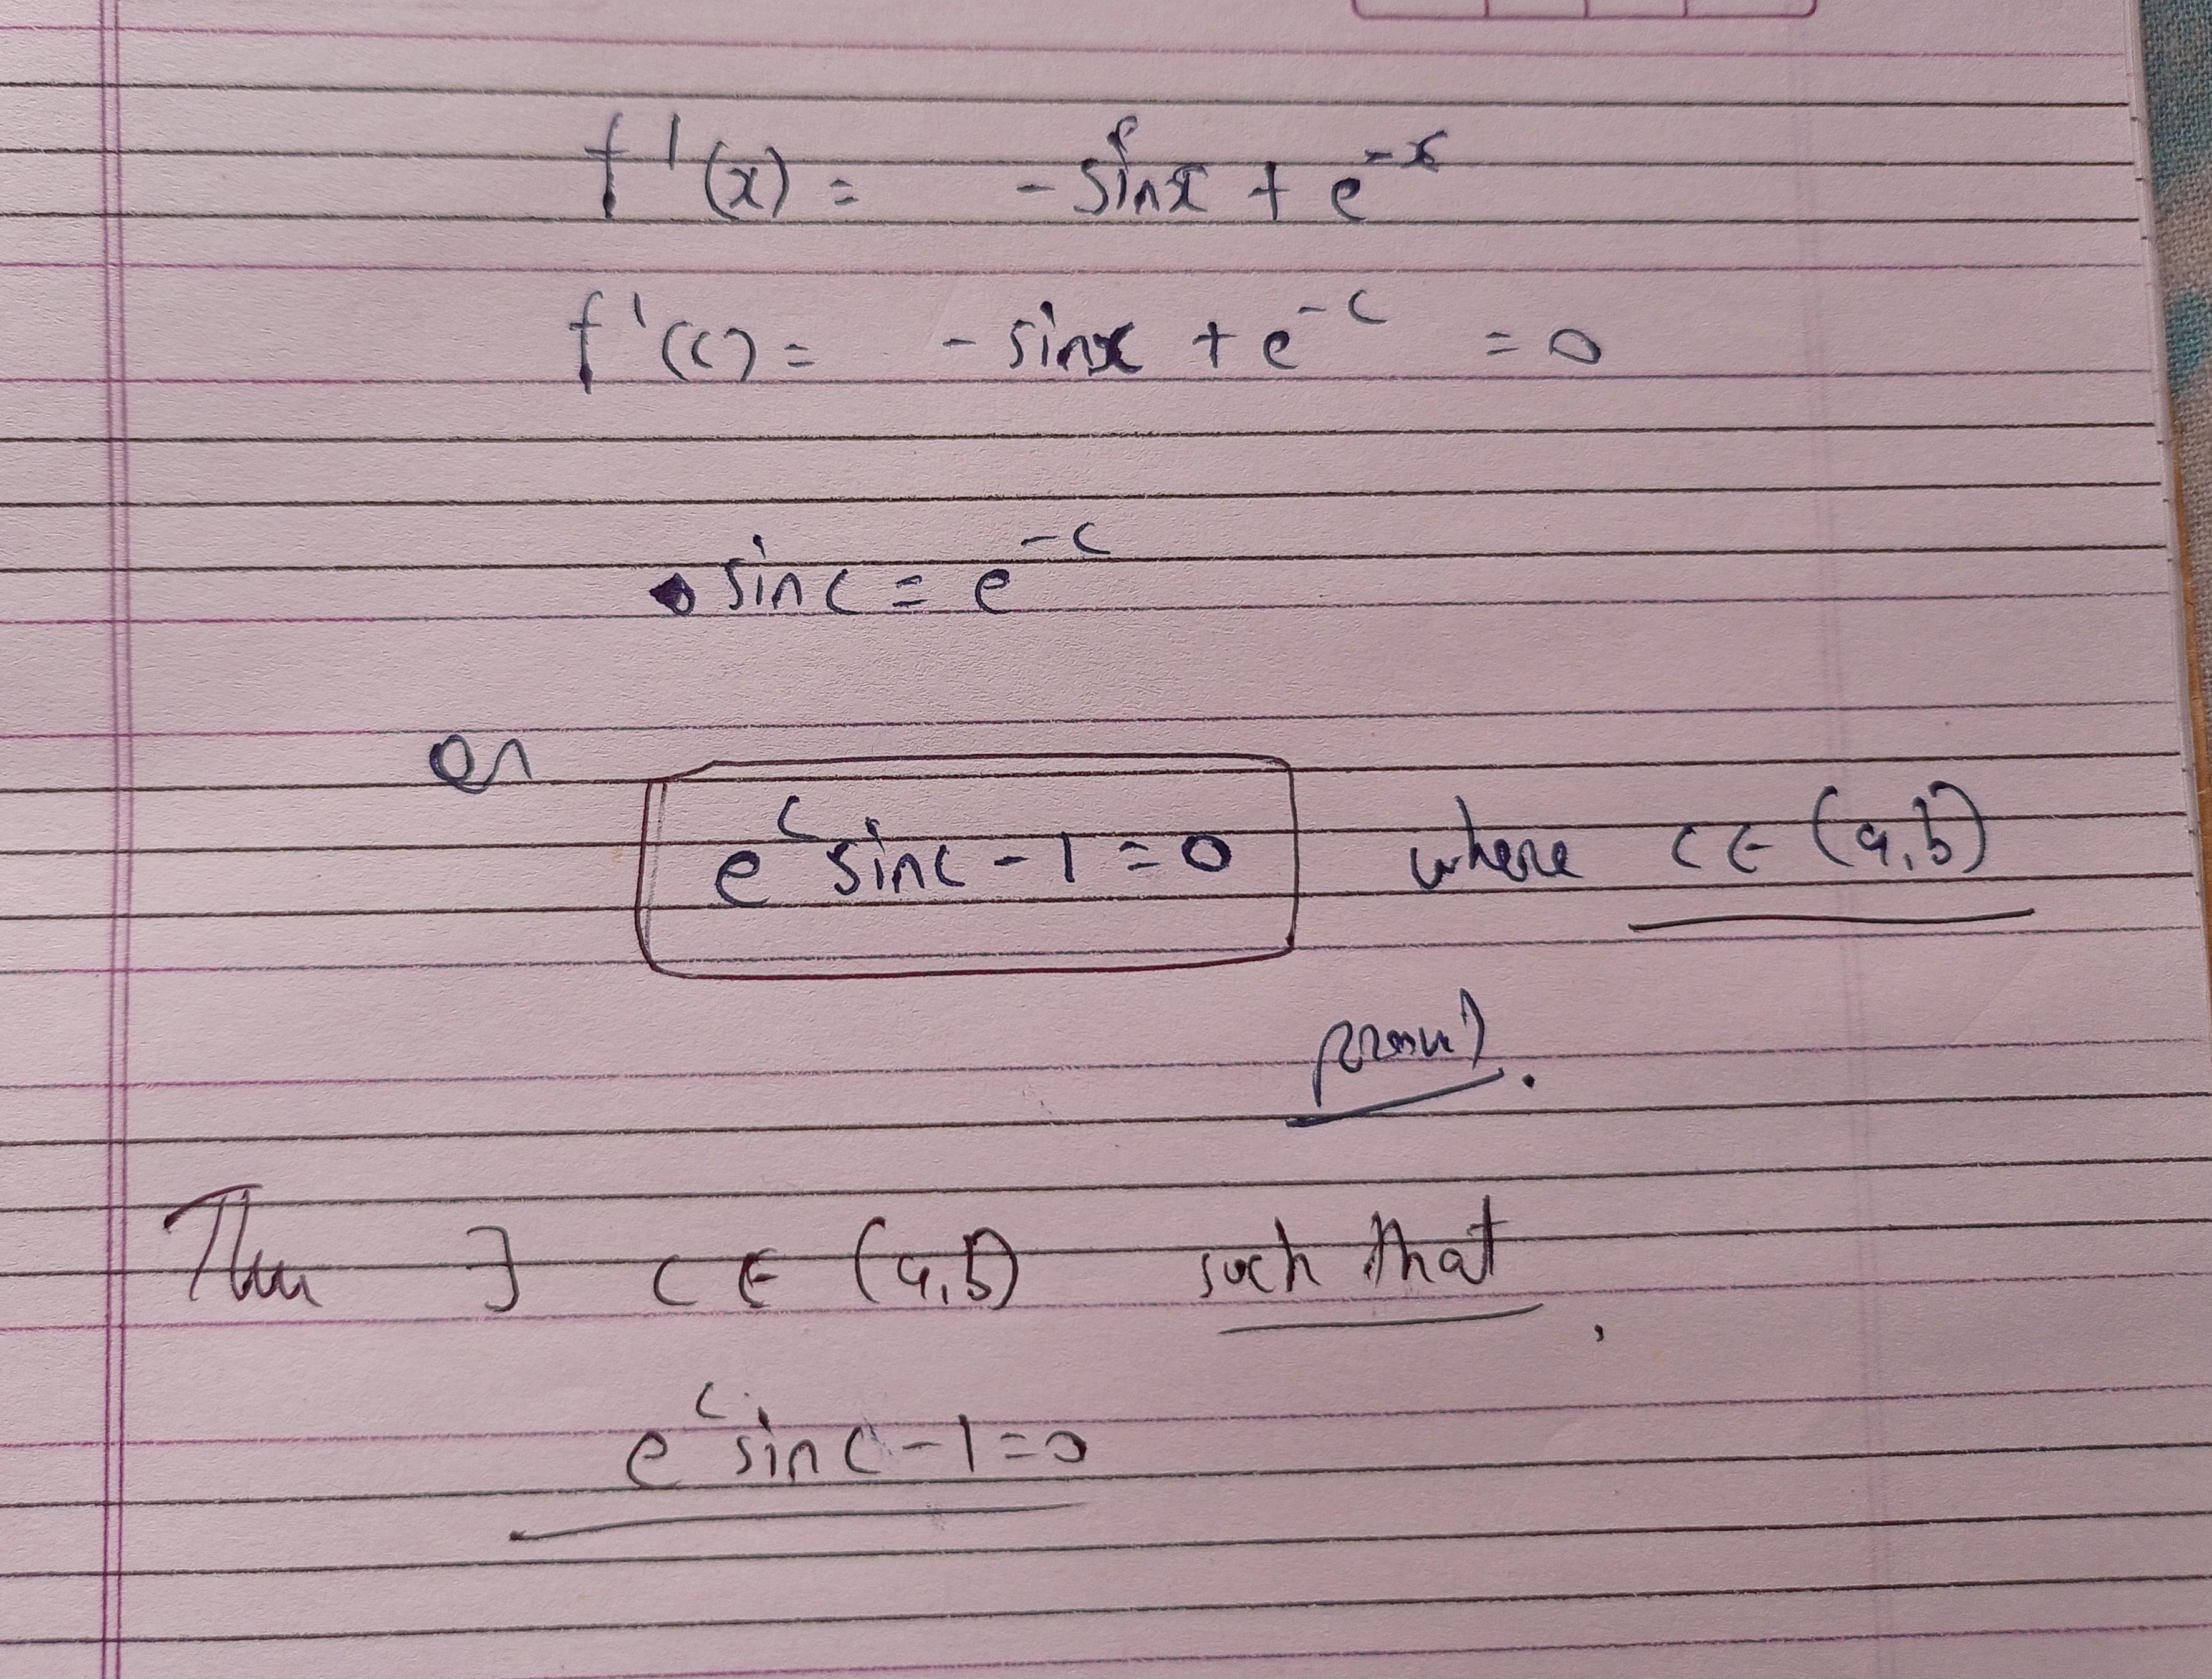 f'(x) = -sinx + e^{-x}
f'(c) = -sinx + e^{-c} = 0
sinc = e^{-c}
or
e^c sinc - 1 = 0 where c ∈ (a,b)
proved.
Then ∃ c ∈ (a,b) such that,
e^c sinc - 1 = 0